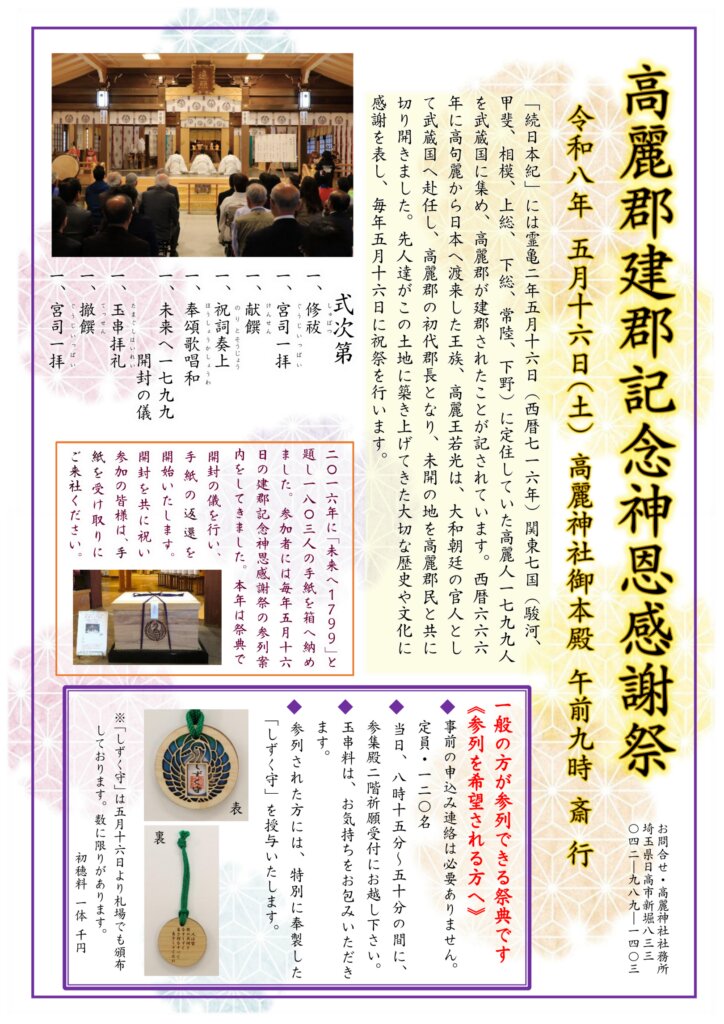 高麗郡建郡記念神恩感謝祭
令和八年 五月十六日(土) 高麗神社御本殿 午前九時 斎行
お問合せ・高麗神社社務所
埼玉県日高市新堀八三三
〇四二―九八九―一四〇三
「続日本紀」には霊亀二年五月十六日(西暦七一六年)関東七国(駿河、
甲斐、相模、上総、下総、常陸、下野)に定住していた高麗人一七九九人
を武蔵国に集め、高麗郡が建郡されたことが記されています。西暦六六六
年に高句麗から日本へ渡来した王族、高麗王若光は、大和朝廷の官人とし
て武蔵国へ赴任し、高麗郡の初代郡長となり、未開の地を高麗郡民と共に
切り開きました。先人達がこの土地に築き上げてきた大切な歴史や文化に
感謝を表し、毎年五月十六日に祝祭を行います。
式次第
一、修祓
しゅばつ
一、宮司一拝
ぐうじいっぱい
一、献饌
けんせん
一、祝詞奏上
のりとそうじょう
一、奉頌歌唱和
ほうしょうかしょうわ
一、未来へ一七九九
開封の儀
一、玉串拝礼
たまぐしはいれい
一、撤饌
てっせん
一、宮司一拝
ぐうじいっぱい
二〇一六年に「未来へ1799」と
題し一八〇三人の手紙を箱へ納め
ました。参加者には毎年五月十六
日の建郡記念神恩感謝祭の参列案
内をしてきました。本年は祭典で
開封の儀を行い、
手紙の返還を
開始いたします。
開封を共に祝い
参加の皆様は、手
紙を受け取りに
ご来社ください。
一般の方が参列できる祭典です
《参列を希望される方へ》
◆ 事前の申込み連絡は必要ありません。
定員・一二〇名
◆ 当日、八時十五分~五十分の間に、
参集殿二階祈願受付にお越し下さい。
◆ 玉串料は、お気持ちをお包みいただき
ます。
◆ 参列された方には、特別に奉製した
「しずく守」を授与いたします。
しずく守
表
裏
※「しずく守」は五月十六日より札場でも頒布
しております。数に限りがあります。
初穂料 一体 千円